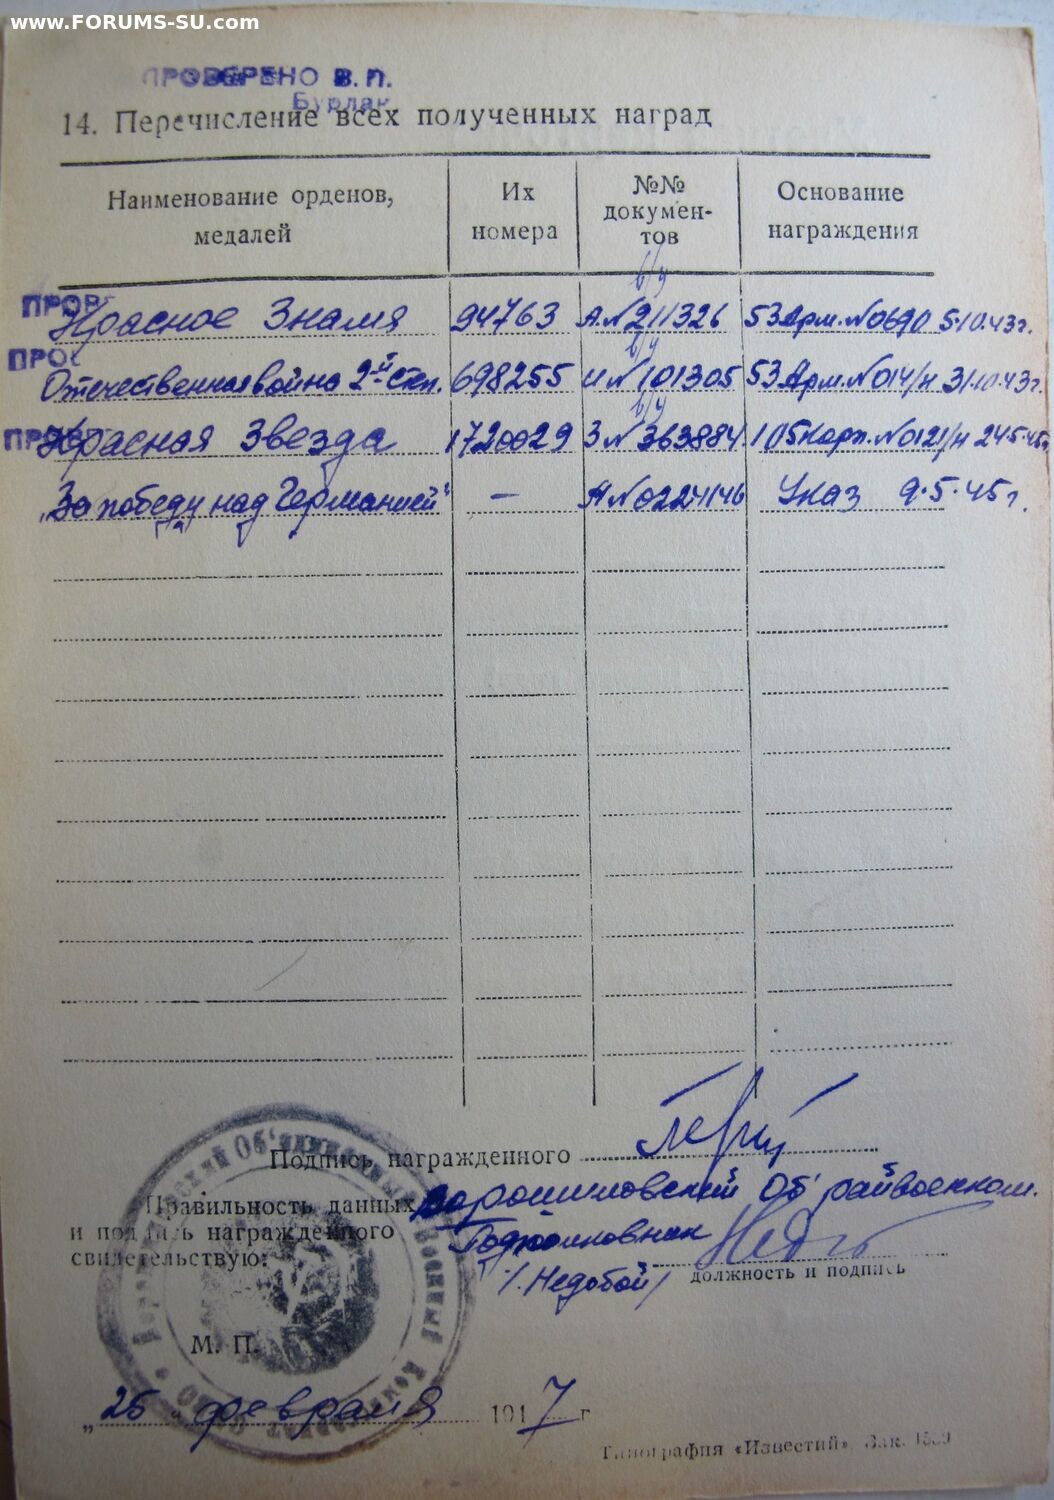 www.FORUMS-SU.com
ПРОВЕРЕНО В. П.
Бурлак
14. Перечисление всех полученных наград
Наименование орденов, медалей
Их номера
№№ докумен-тов
Основание награждения
ПРОВ
б/у
Красное Знамя 94763 А.№211326 53 Арм. №0690 5.10.43г.
ПРОВ
б/у
Отечественная война 2-й степ. 698255 И №101305 53 Арм. №014/н 31.10.43г.
б/у
Красная Звезда 1720029 З №363884 105 Корп. №0121/н 24.5.45г.
„За победу над Германией" — А №0224146 Указ 9.5.45г.
Подпись награжденного
Правильность данных Ворошиловский Об' райвоенком.
и подпись награжденного Подполковник
свидетельствую:
/Недобой/ должность и подпись
М. П.
„26" февраля 1947 г
Типография «Известий». Зак.